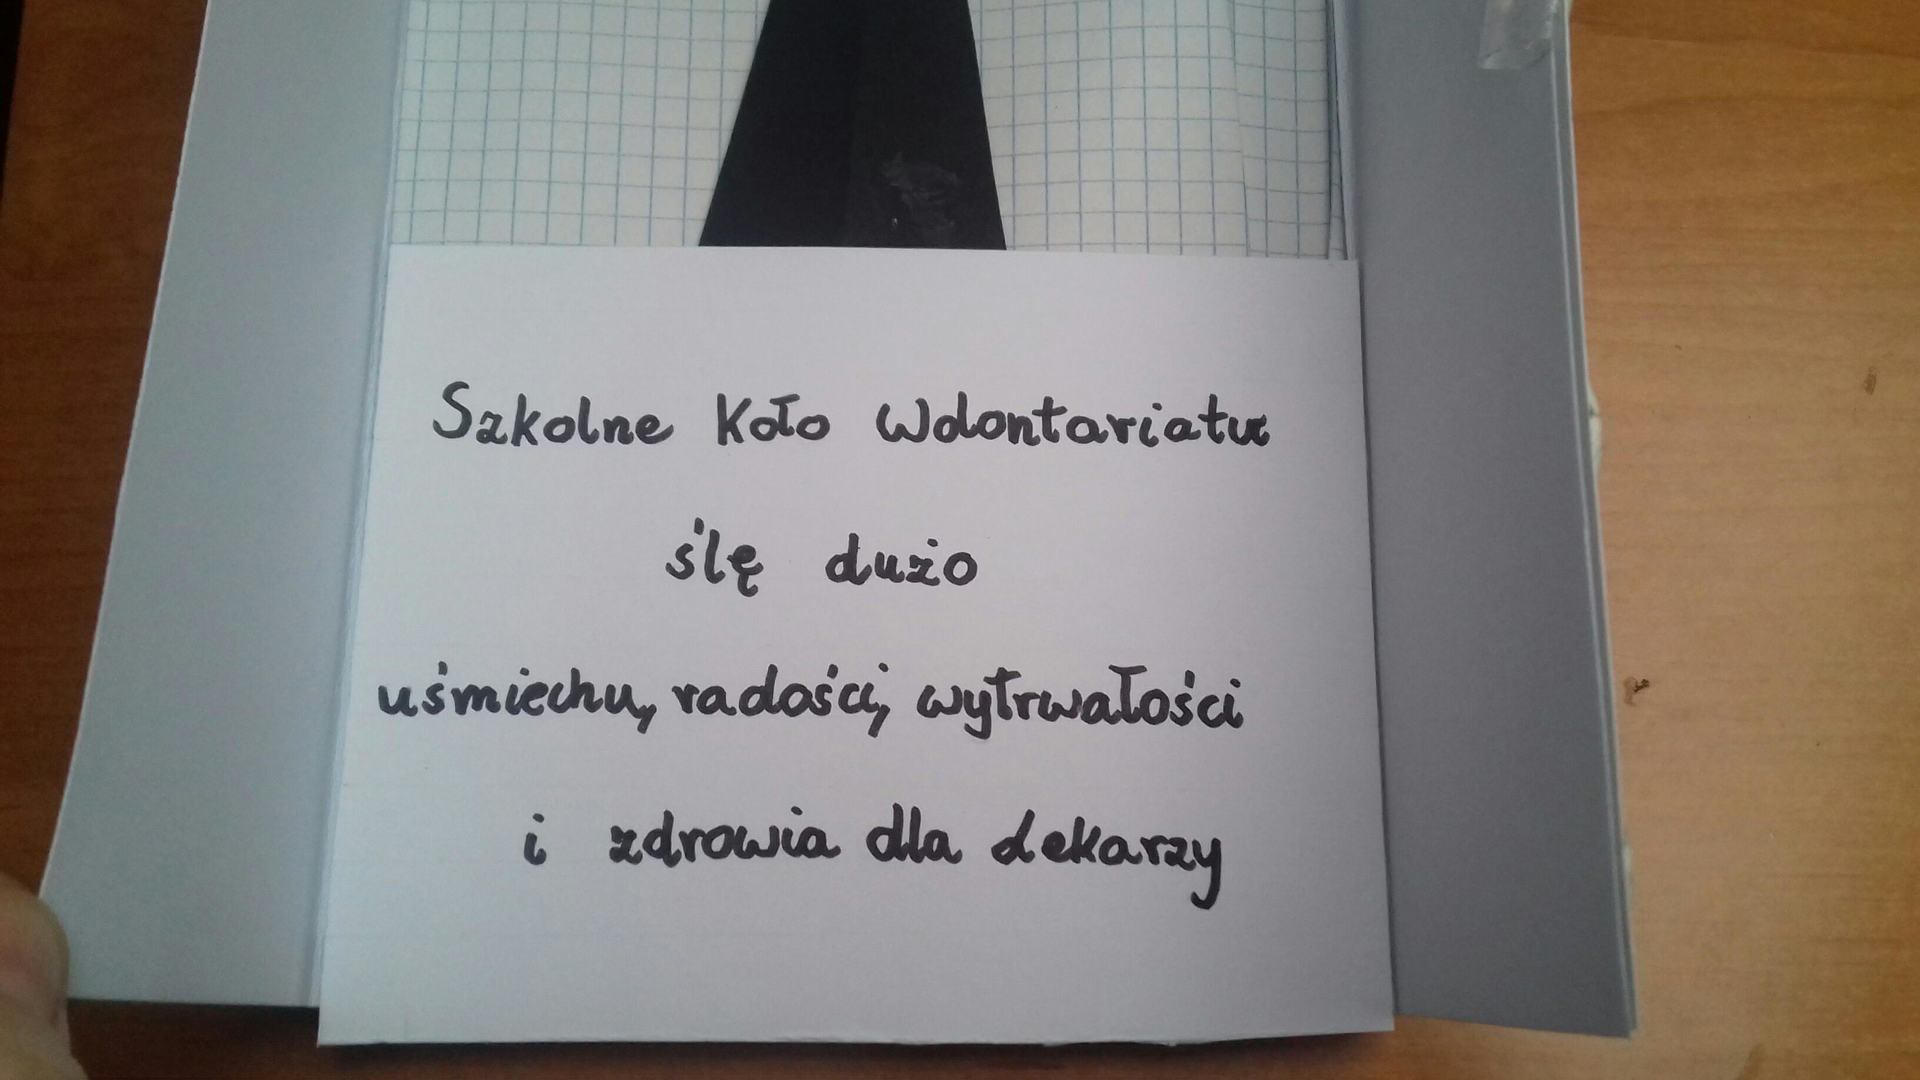 Szkolne Koło Wolontariatu
ślę dużo
uśmiechu, radości, wytrwałości
i zdrowia dla lekarzy